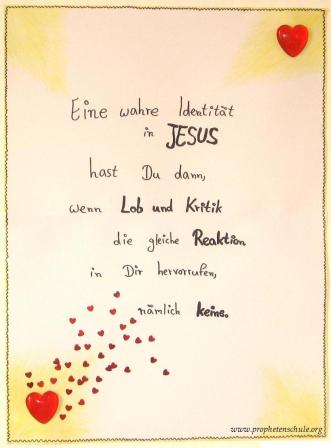 Eine wahre Identität
in JESUS
hast Du dann,
wenn Lob und Kritik
die gleiche Reaktion
in Dir hervorrufen,
nämlich keine.
www.prophetenschule.org